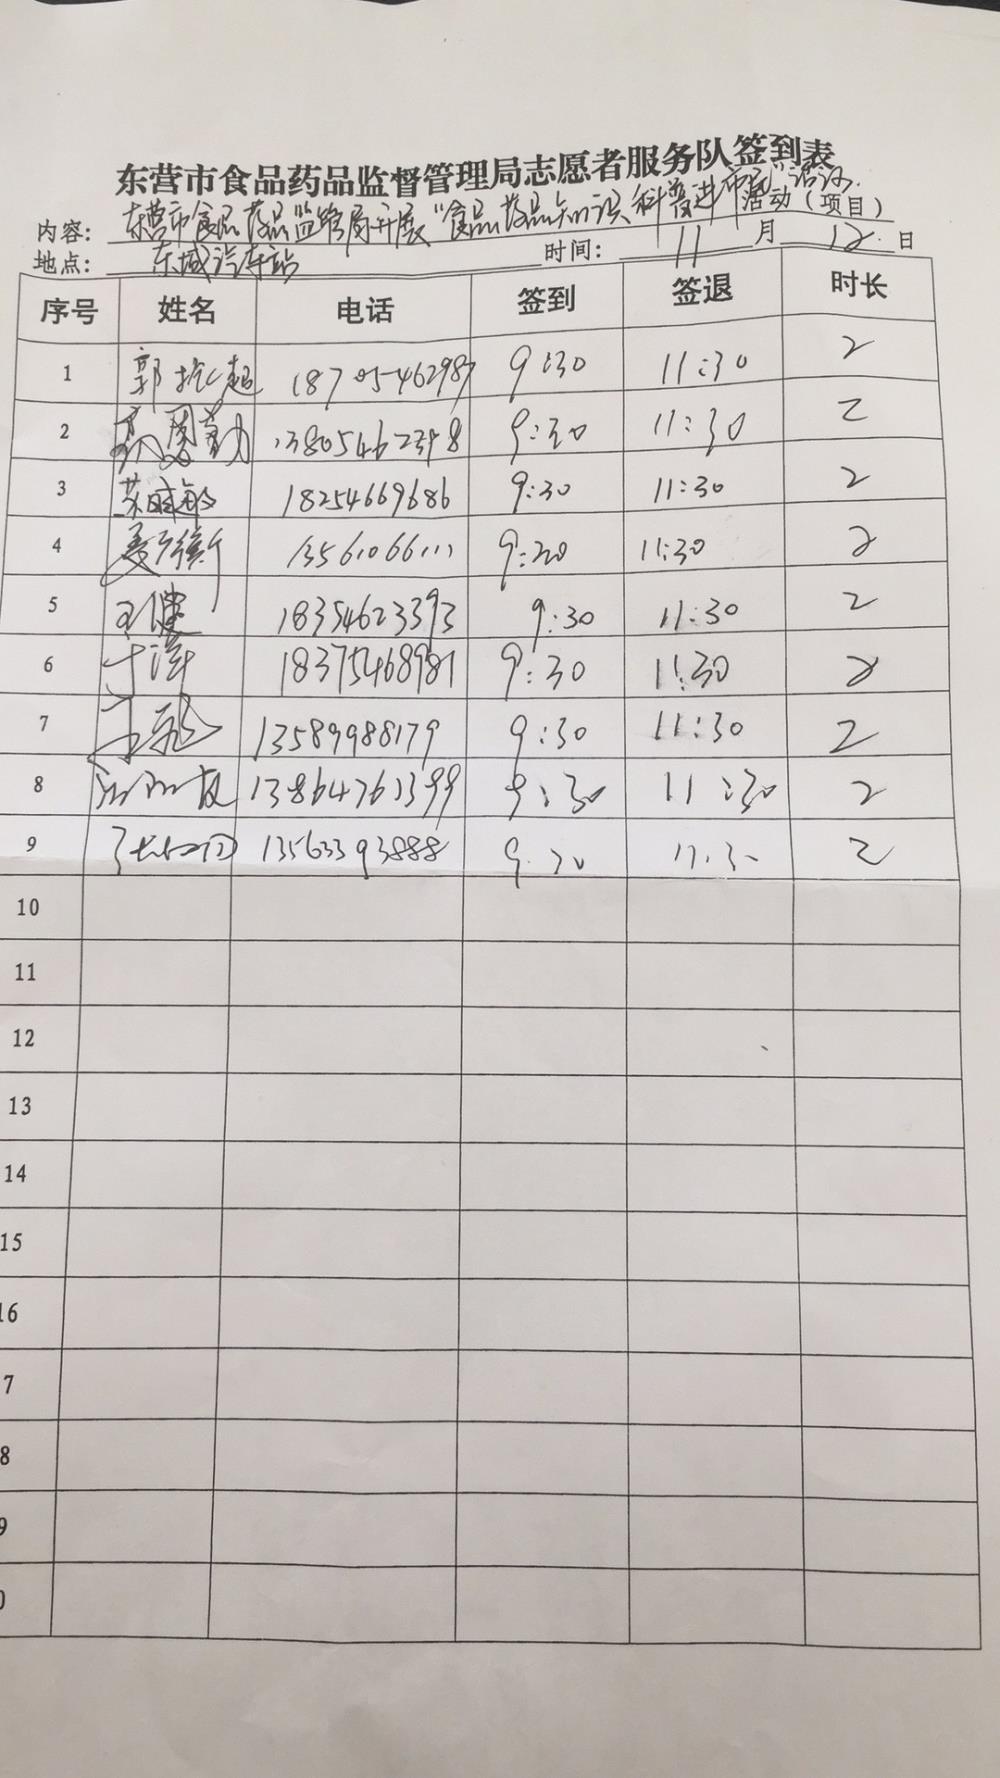 东营市食品药品监督管理局志愿者服务队签到表
内容：东营市食品药品监管局开展“食品药品知识科普进市民”活动 活动（项目）
地点：东城汽车站 时间：11月12日
序号 姓名 电话 签到 签退 时长
1 郭 超 18705462987 9:30 11:30 2
2 9:30 11:30 2
3 苏 敏 18254669686 9:30 11:30 2
4 姜 衡 13561066111 9:30 11:30 2
5 王健 18354623393 9:30 11:30 2
6 于洋 18375468981 9:30 11:30 2
7 13589988179 9:30 11:30 2
8 13864761399 9:30 11:30 2
9 13563393888 9:30 11:30 2
10
11
12
13
14
15
16
7
8
9
0